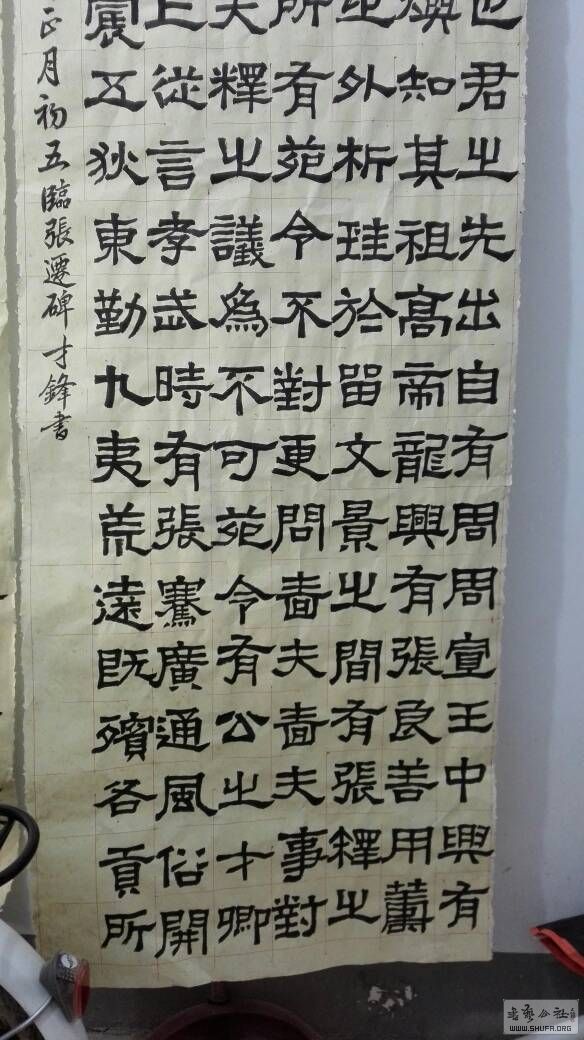 也君之先出自有周周宣王中興有
煥知其祖高帝龍興有張良善用籌
之外析珪於留文景之間有張釋之
所有苑令不對更問嗇夫嗇夫事對
夫釋之議為不可苑令有公之才卿
上從言孝武時有張騫廣通風俗開
震五狄東勤九夷荒遠既殯各貢所
正月初五臨張遷碑才鋒書
书艺公社
WWW.SHUFA.ORG